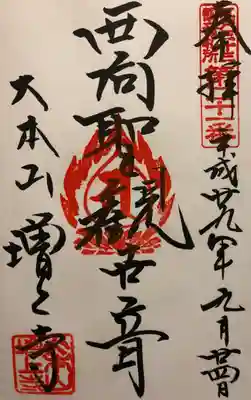 奉拝 平成廿九年九月廿四日
西向聖観世音
大本山 増上寺